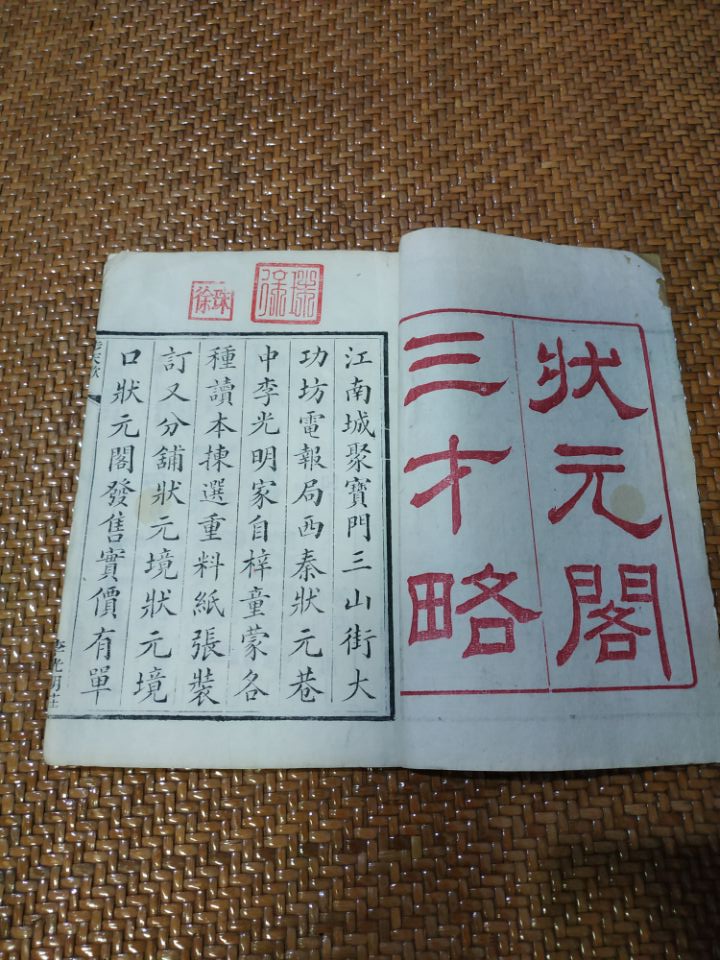 狀元閣
三才略
徐珠
徐珠
江南城聚寶門三山街大
功坊電報局西秦狀元巷
中李光明家自梓童蒙各
種讀本揀選重料紙張裝
訂又分舖狀元境狀元境
口狀元閣發售實價有單
李光明莊